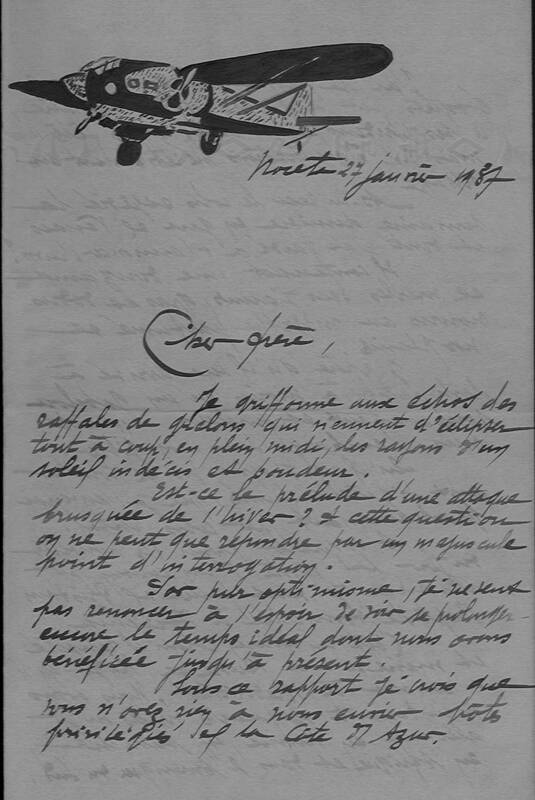 27 janvier 1937
Cher frère,
Je griffonne aux échos des
raffales de grêlons qui viennent d'éclipser
tout à coup, en plein midi, les rayons d'un
soleil indécis et boudeur.
Est-ce le prélude d'une attaque
brusquée de l'hiver ? À cette question
on ne peut que répondre par un majuscule
point d'interrogation.
Par pur optimisme, je ne veux
pas renoncer à l'espoir de voir se prolonger
encore le temps idéal dont nous avons
bénéficié jusqu'à présent.
Sous ce rapport je crois que
vous n'avez rien à nous envier hôtes
privilégiés de la Côte d'Azur.